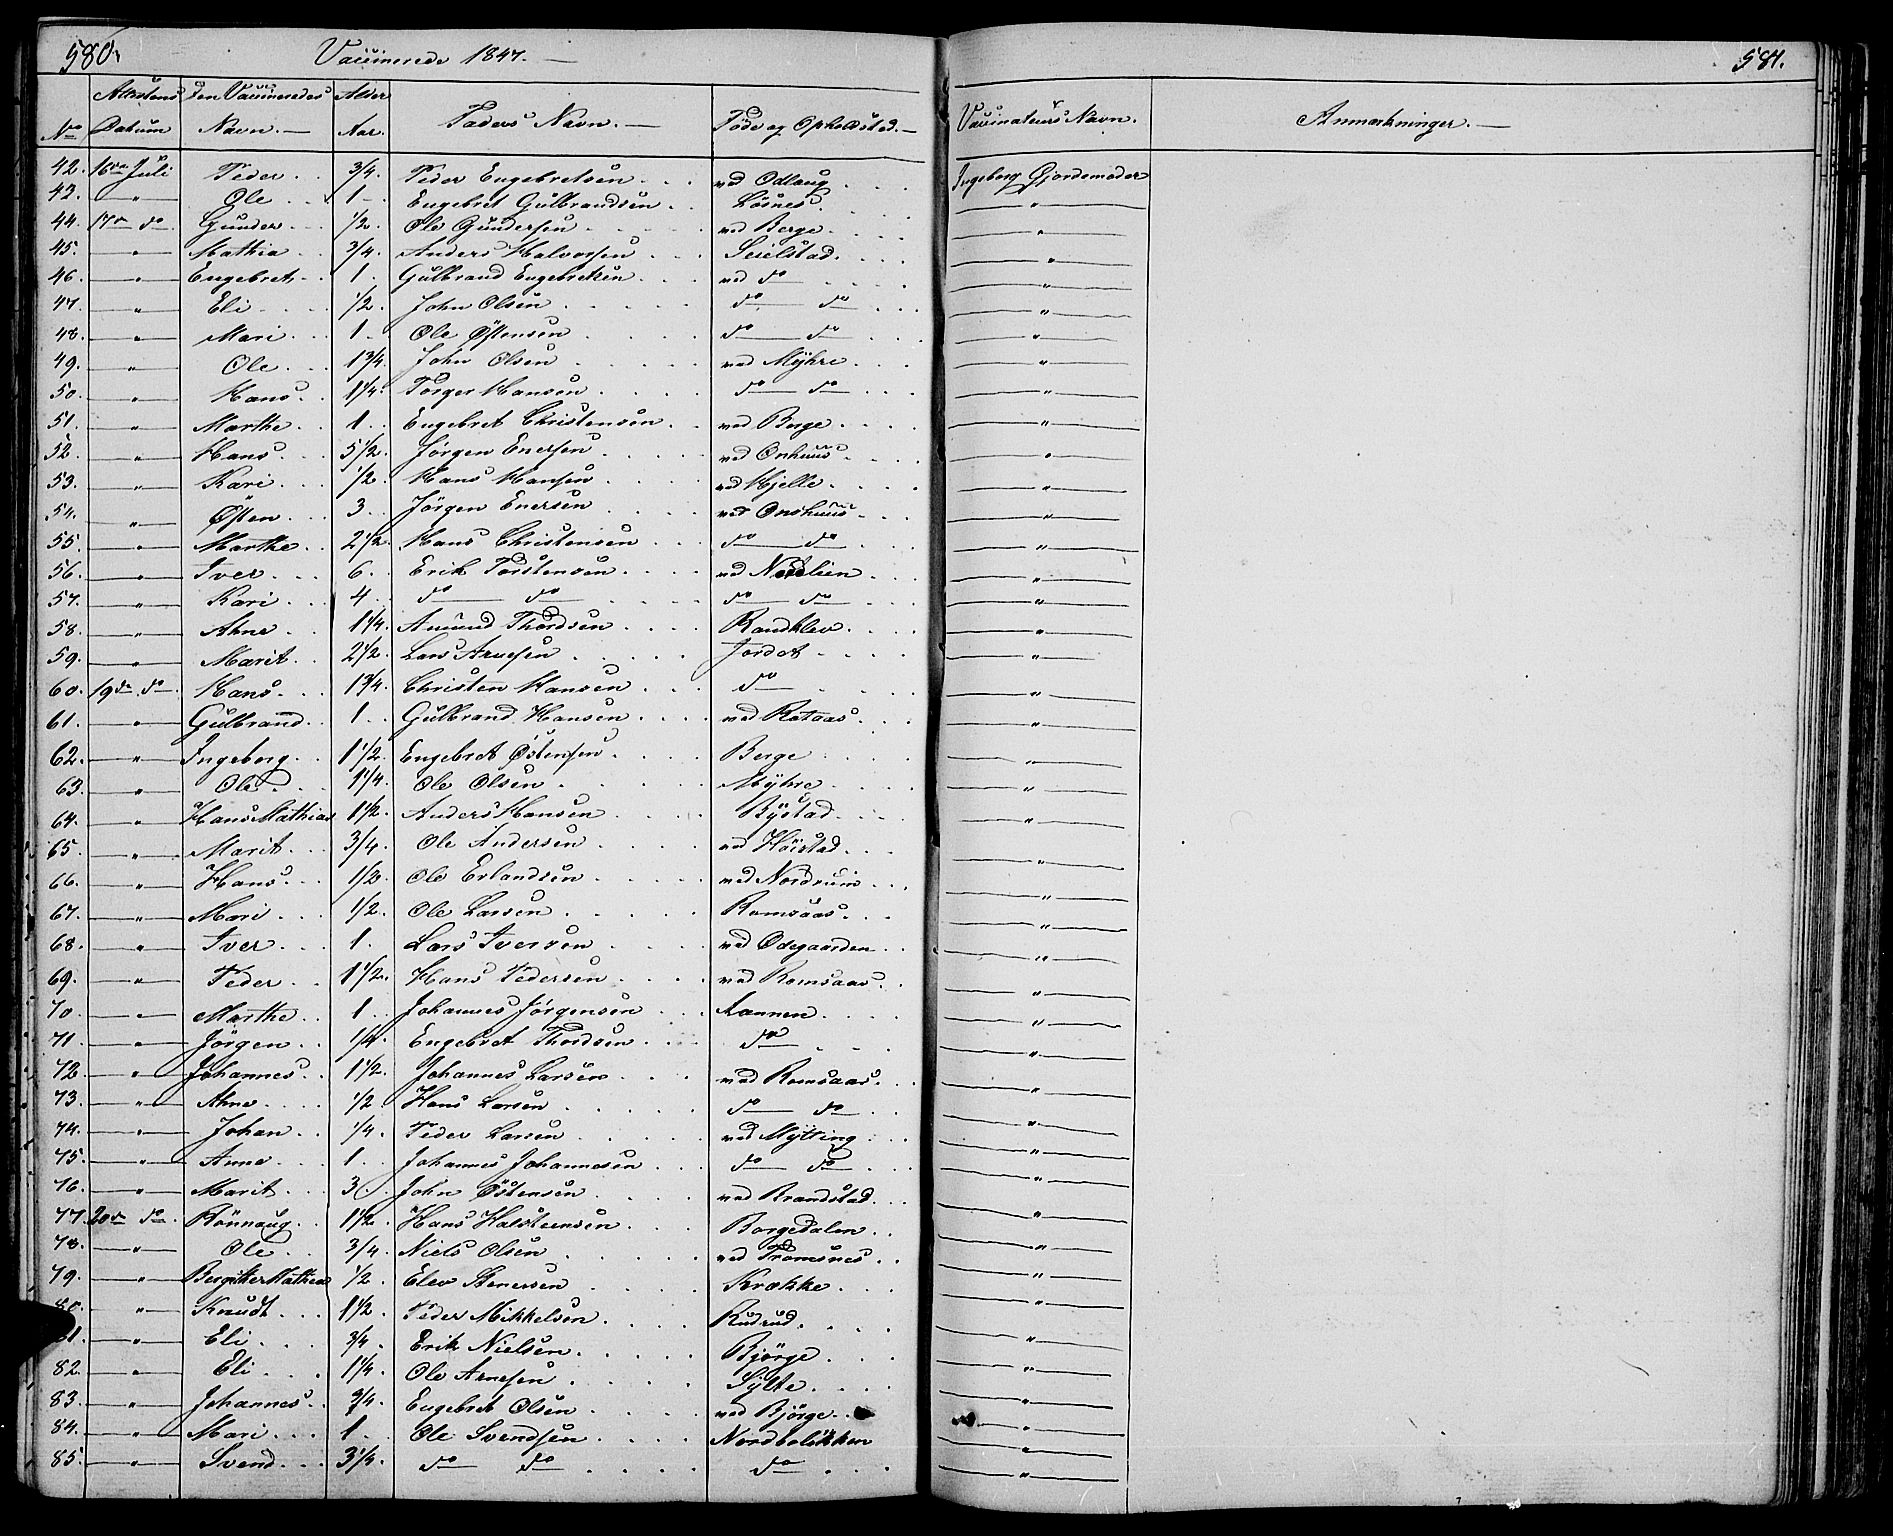 580. Vaccinerede 1847. — 581.
No Attestens Datum Den Vaccineredes Navn. — Alder Aar. Faders Navn. — Føde og Opholdsted. — Vaccinateurs Navn. Anmærkninger. —
42. 16de Juli Peder 3/4. Peder Engebretsen ved Odlaug Ingeborg Gjordemoder
43. " Ole 1 Engebret Gulbrandsen Løsnes "
44. 17de do Gunder 1/2. Ole Gundersen ved Berge "
45. " Mathia 3/4. Anders Halvorsen Seielstad "
46. " Engebret 1 Gulbrand Engebretsen ved do "
47. " Eli 1/2. John Olsen do do "
48. " Mari 1 Ole Østensen do do "
49. " Ole 1 3/4. John Olsen ved Myhre "
50. " Hans 1 1/4. Torger Hansen do do "
51. " Marthe 1 Engebret Christensen ved Berge "
52. " Hans 5 1/2. Jørgen Enersen ved Onhuus "
53. " Kari 1/2 Hans Hansen ved Hjelle "
54. " Østen 3 Jørgen Enersen ved Onshuus "
55. " Marthe 2 1/2. Hans Christensen do do "
56. " Iver 6 Erik Torstensen ved Nordlien "
57. " Kari 4 do do do do "
58. " Ahne 1 1/4. Amund Thordsen Randklev "
59. " Marit 2 1/2. Lars Arnesen Jordet "
60. 19de do Hans 1 3/4. Christen Hansen do "
61. " Gulbrand 1 Gulbrand Hansen ved Rataas "
62. " Ingeborg 1 1/2. Engebret Østensen Berge "
63. " Ole 1 1/4. Ole Olsen Myhre "
64. " Hans Mathias 1 1/2. Anders Hansen Bystad "
65. " Marit 3/4. Ole Andersen ved Høistad "
66. " Hans 1/2. Ole Erlandsen ved Nordrum "
67. " Mari 1/2. Ole Larsen Romsaas "
68. " Iver 1 Lars Iversen ved Ødegaarden "
69. " Peder 1 1/2. Hans Pedersen ved Romsaas "
70. " Marthe 1 Johannes Jørgensen Lannem "
71. " Jørgen 1/4. Engebret Thordsen do "
72. " Johannes 1 1/2. Johannes Larsen ved Romsaas "
73. " Ahne 1/2 Hans Larsen do do "
74. " Johan 1/4. Peder Larsen ved Mytting "
75. " Anne 1 Johannes Johannesen do do "
76. " Marit 3 John Østensen ved Brandstad "
77. 20de do Rønnaug 1 1/2. Hans Halsteensen Borgedalen "
78. " Ole 3/4. Niels Olsen ved Tromsnes "
79. " Bergitte Mathea 1/2. Elev Stenersen Krække "
80. " Knudt 1 1/2. Peder Mikkelsen Rudrud "
81. " Eli 3/4. Erik Nielsen Bjørge "
82. " Eli 1 1/4. Ole Arnesen Sylte "
83. " Johannes 3/4. Engebret Olsen ved Bjørge "
84. " Mari 1 Ole Svendsen Nordbeløkken "
85. " Svend 3 1/4. do do do "